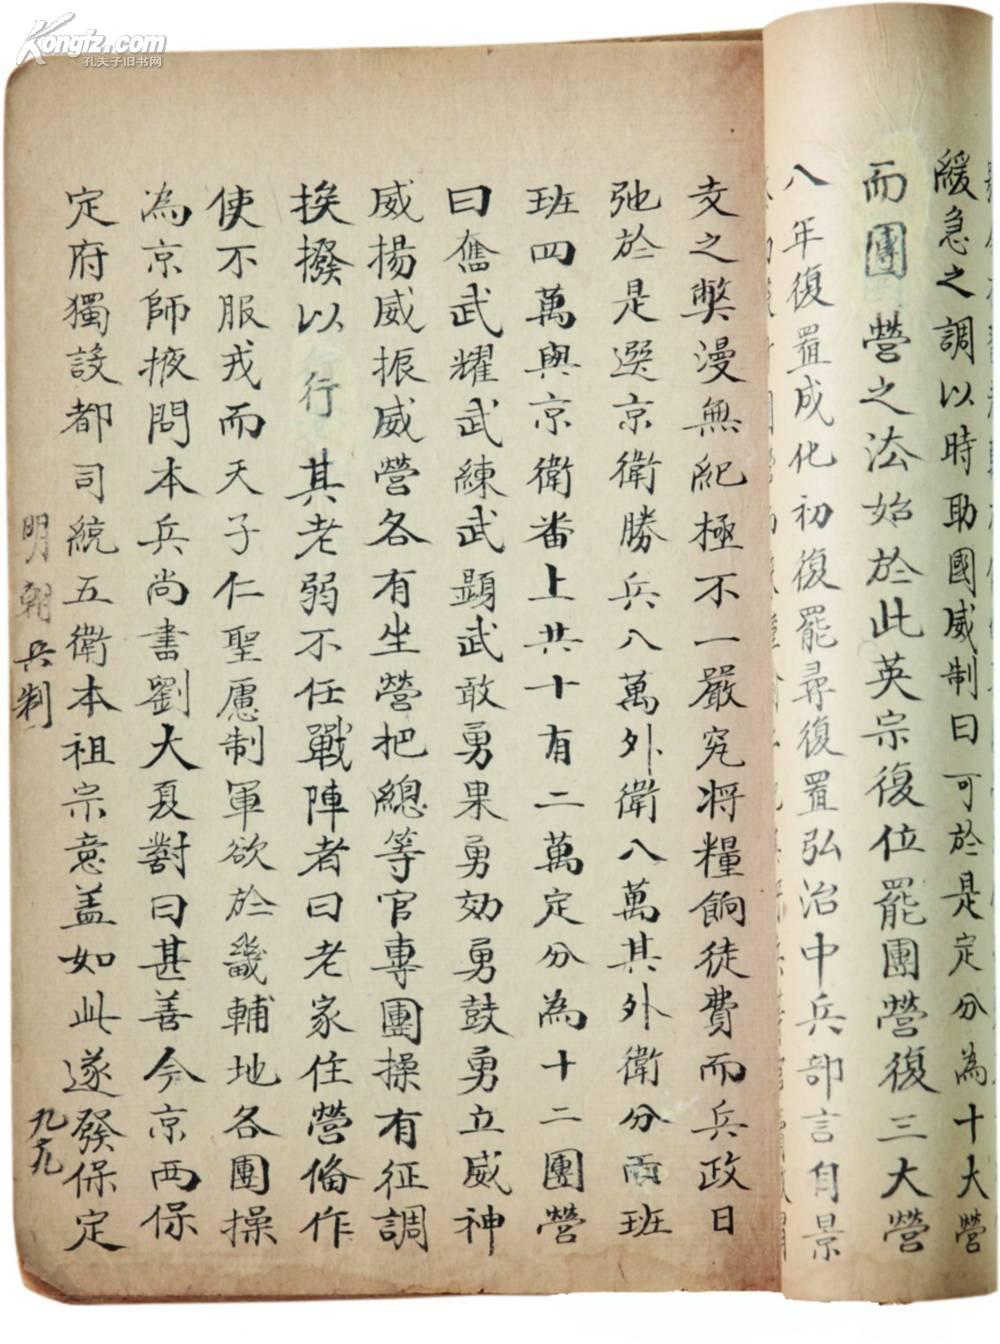 Kongfz.com
孔夫子旧书网
緩急之調以時助國威制曰可於是定分為十大營
而團營之法始於此英宗復位罷團營復三大營
八年復置成化初復罷尋復置弘治中兵部言自景
之弊漫無紀極不一嚴究將糧餉徒費而兵政日
弛於是選京衛勝兵八萬外衛八萬其外衛分兩班
班四萬與京衛番上共十有二萬定分為十二團營
曰奮武耀武練武顯武敢勇果勇効勇鼓勇立威神
威揚威振威營各有坐營把總等官專團操有征調
挨撥以行其老弱不任戰陣者曰老家住營俻作
使不服戎而天子仁聖慮制軍欲於畿輔地各團操
為京師掖問本兵尚書劉大夏對曰甚善今京西保
定府獨設都司統五衛本祖宗意盖如此遂發保定
明朝兵制
九十九